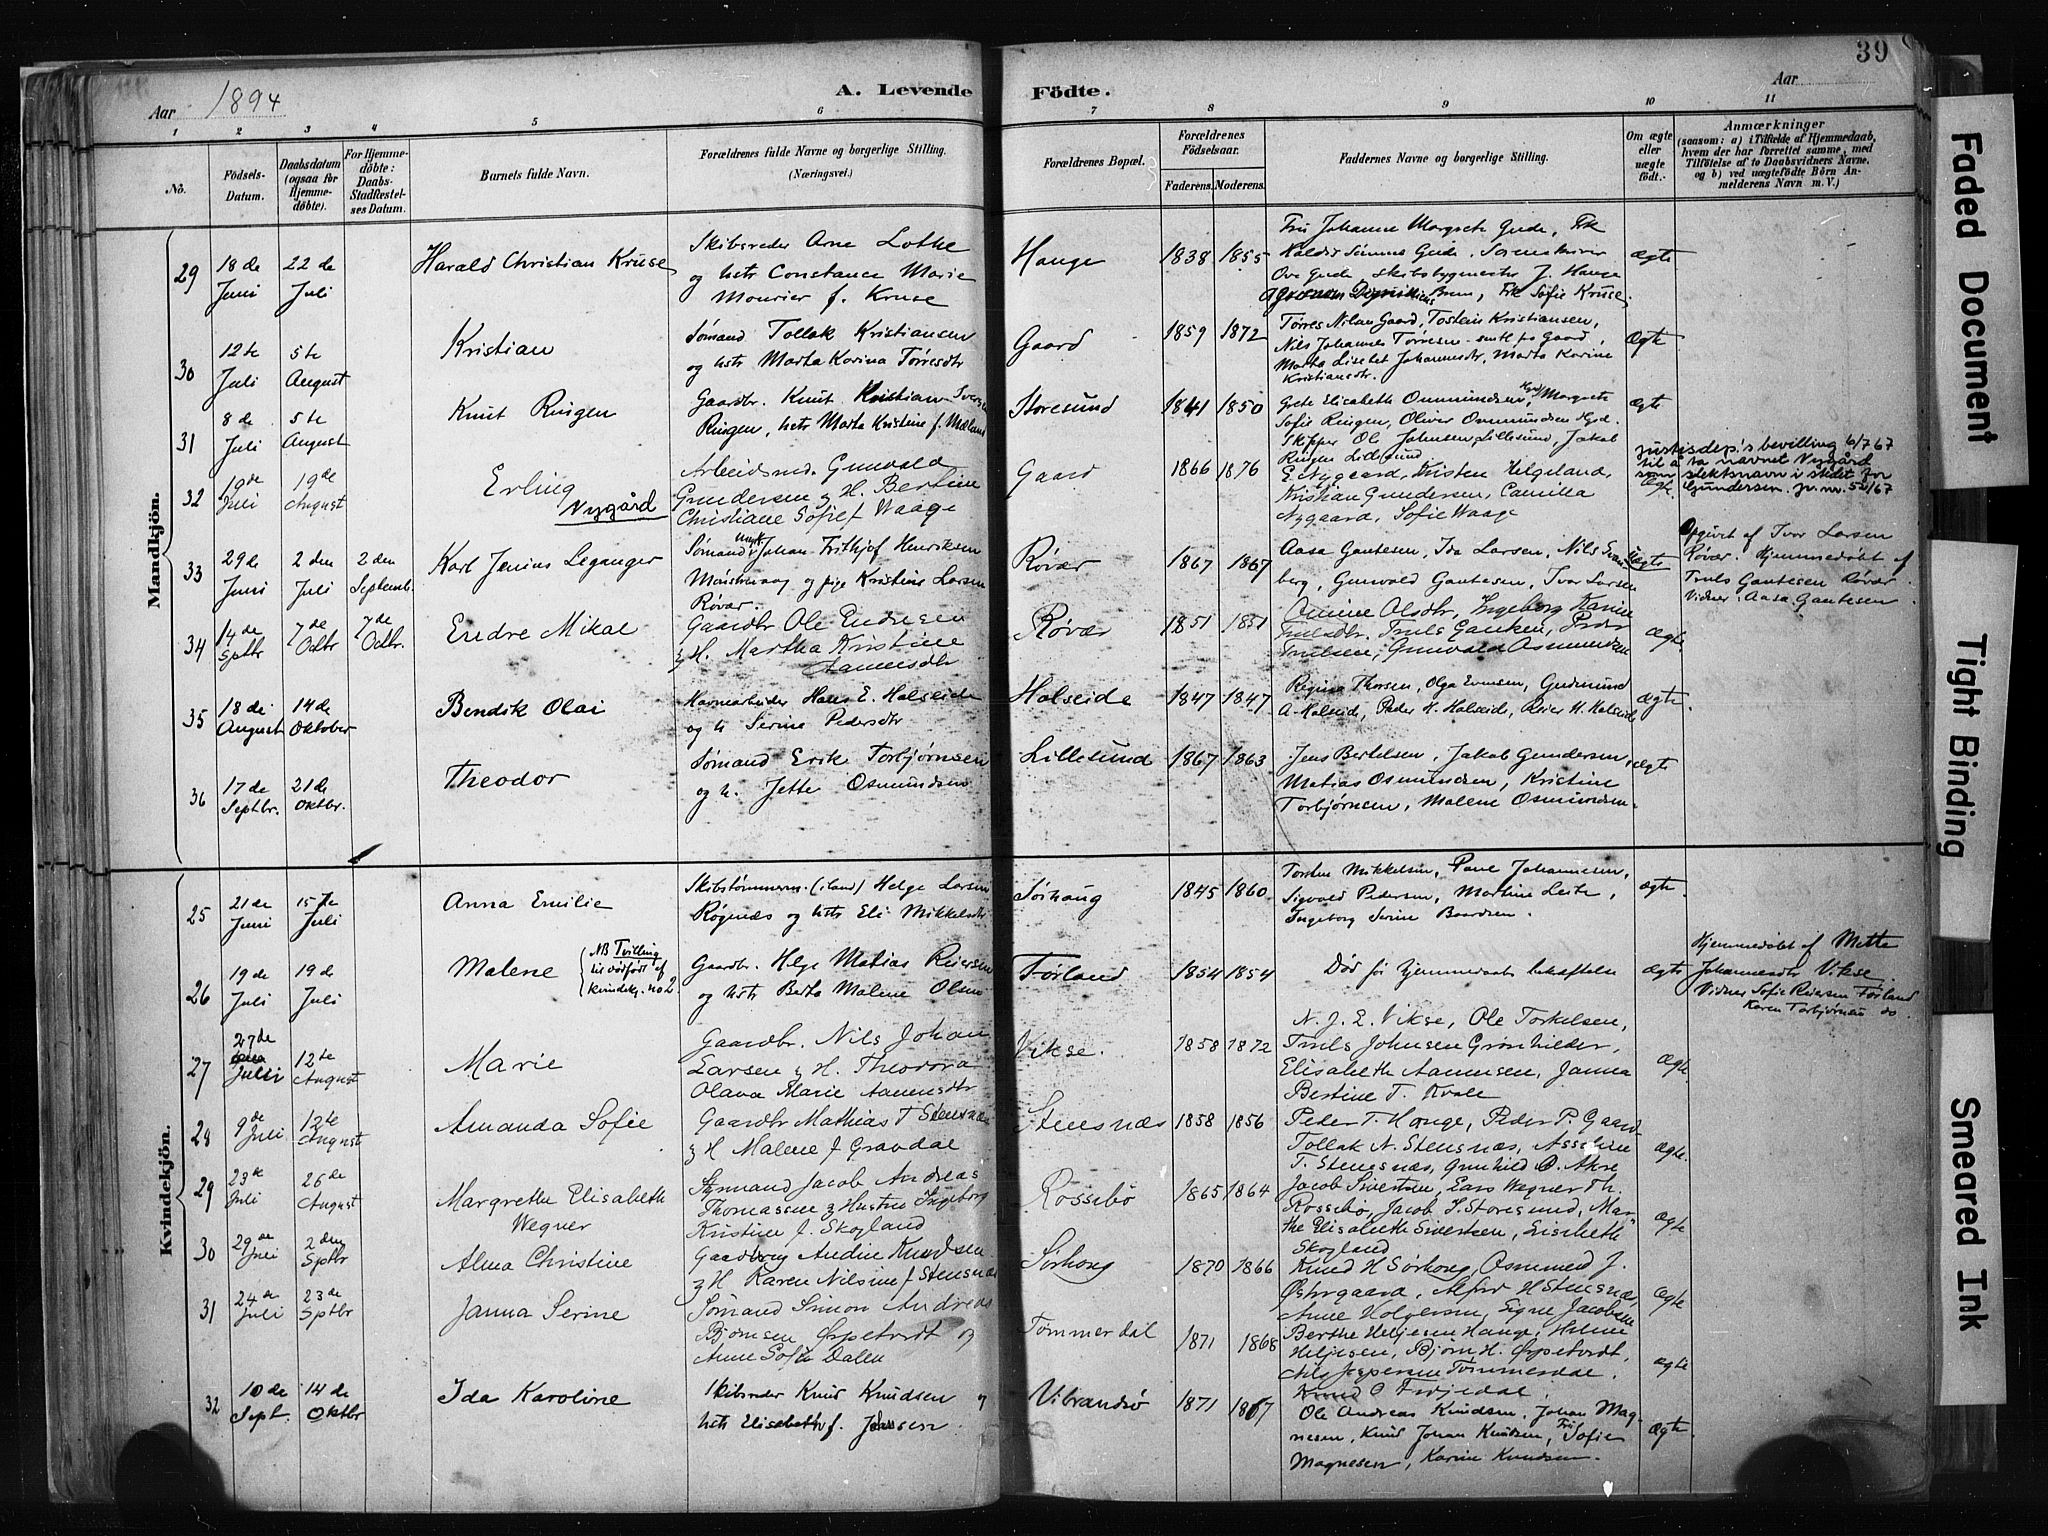 39
Aar 1894
A. Levende Födte.
Aar
1 2 3 4 5 6 7 8 9 10 11
No.
Födsels-Datum.
Daabsdatum (ogsaa for Hjemme-döbte).
For Hjemme-döbte: Daabs-Stadfæstel-ses Datum.
Barnets fulde Navn.
Forældrenes fulde Navne og borgerlige Stilling. (Næringsvei.)
Forældrenes Bopæl.
Forældrenes Födselsaar.
Faderens. Moderens.
Faddernes Navne og borgerlige Stilling.
Om ægte eller uægte födt.
Anmærkninger
(saasom: a) i Tilfælde af Hjemmedaab, hvem der har forrettet samme, med Tilföielse af to Daabsvidners Navne, og b) ved uægtefödte Börn Anmelderens Navn m. V.)
Mandkjön.
29 18 de Juni 22 de Juli Harald Christian Kruse
Skibsreder Arne Lothe
og hstr Constance Marie
Mourier f. Kruse
Hauge 1838 1855
Fru Johanne Margrete Gude, Frk
Gude, Sorenskriver
Ove Gude, skibsbygmester J. Hauge
Brun, Frk Sofie Kruse.
ægte
30 12te Juli 5te August Kristian
Sømand Tollak Kristiansen
og hstr Marta Karina Tørresdtr
Gaard 1859 1872
Tørres Nilsen Gaard, Tostein Kristiansen,
Nils Johannes Tørresen smtl fra Gaard,
Marta Lisebet Johannesdtr, Marta Karine
Kristiansdtr.
Ægte
31 8 de Juli 5te August Knut Ringen
Gaardbr. Knut Kristian Iversen
Ringen, hstr Marta Kristine f. Mæland
Storesund 1841 1850
Grete Elisabeth Osmundsen, Margrete
Sofie Ringen, Oliver Osmundsen
Skipper Ole Johnsen, Lillesund, Jakob
Ringen Lillesund
ægte
32 19de Juli 19de August Erling
Nygård
Arbeidsmd. Gunvald
Gundersen & H. Bertine
Christiane Sofie f Waage
Gaard 1866 1876
E. Nygaard, Kristen Helgeland,
Kristian Gundersen, Camilla
Nygaard, Sofie Waage
Ægte
justisdep's bevilling 6/7 67
til å ta navnet Nygård
som slektsnavn i stedet for
Gundersen. jr. nr. 52/67
33 29 de Juni 2 den Juli 2 den Septemb. Karl Jenius Leganger
Sømand ungk. Johan Frithjof Henriksen
og pige Kristine Larsen
Røvær.
Røvær 1867 1867
Aasa Gautesen, Ida Larsen, Nils Svan-
berg, Gunvald Gautesen, Ivar Larsen
uægte
Opgivet af Ivar Larsen
Røvær. Hjemmedøbt af
Truls Gautesen Røvær.
Vidner: Aasa Gautesen
34 14 de Sptbr 7 de Octbr 7 de Octbr. Endre Mikal
Gaardbr Ole Endresen
& H. Martha Kristine
Røvær 1851 1851
Olsdtr, Ingeborg Karine
Trulsdtr. Truls Gautesen, Peder
Trulsen, Gunvald Osmundsen
Ægte
35 18 de August 14 de Oktober Bendik Olai
Havnearbeider Hans E. Halseide
og h Serine Pedersdtr
Halseide 1847 1847
Regina Thorsen, Olga Evensen, Gudmund
A. Halseid, Peder H. Halseid, Reier H. Halseid
ægte.
36 17 de Septbr. 21 de Oktbr. Theodor
Sømand Erik Torbjørnsen
og h. Jette Osmundsen
Lillesund 1867 1863
Jens Bertelsen, Jakob Gundersen,
Matias Osmundsen, Kristine
Torbjørnsen, Malene Osmundsen.
ægte
Kvindekjön.
25 21 de Juni 15 de Juli Anna Emilie
Skibstømmerm. (iland) Helge Larsen
Røgnæs og hstr Eli Mikkelsdtr
Sørhaug 1845 1860
Torsten Mikkelsen, Johannesen,
Sigvald Pedersen, Martine Leite,
Ingeborg Serine Baardsen.
ægte.
26 19 de Juli 19 de Juli Malene
NB Tvilling
til dødfødt af
kvindekj. no 2.
Gaardbr. Helge Matias Reiersen
og hstr Berta Malene Olsen
Førland 1854 1854
Død før hjemmedaabs bekræftelse
ægte
Hjemmedøbt af Mette
Johannesdtr Vikse.
Vidner Sofie Reiersen Førland
Karen Torbjørnsen do.
27 27 de Juli 12te August Marie
Gaardbr. Nils Johan
Larsen & H. Theodora
Olava Marie Aamundsdtr
Vikse. 1858 1872
N. J. E. Vikse, Ole Torkelsen,
Truls Johnsen Grønhilder,
Elisabeth Aamundsen, Janna
Bertine T. Kvale
Ægte.
28 9de Juli 12te August Amanda Sofie
Gaardbr Mathias T Stensnæs
& H Malene f Gravdal
Stensnæs 1858 1856
Peder T. Hauge, Peder P. Gaard
Tollak N. Stensnæs,
T. Stensnæs, Gunhild O. Akre
Ægte.
29 23 de Juli 26 de August Margrethe Elisabeth
Wegner
Styrmand Jacob Andreas
Thomassen & Hustru Ingeborg
Kristine f. Skogland
Rossebø 1865 1864
Jacob Sivertsen, Lars Wegner Th.
Rossebø, Jacob S. Storesund, Mar-
the Elisabeth Sivertsen, Lisebeth
Skogland
Ægte
30 29 de Juli 2 den Sptbr Alma Christine
Knudsen
& H Karen Nilsine f Stensnæs
Sørhoug 1870 1866
Knud H Sørhoug, Osmund J.
Østrgaard, Alfer H Stensnæs,
Anne Holgersen, Signe Jacobsen
Ægte
31 24 de Juli 23 de Sptbr Janna Serine
Sømand Simon Andreas
Bjørnsen Ørpetvedt og
Anne Sofie Dalen
Tømmerdal 1871 1868
Berthe Heljesen Hauge, Helene
Heljesen, Bjørn H. Ørpetvedt,
Nils Jespersen Tømmerdal.
Knud O Frøjedal.
Ægte
32 10 de Sept. 14 de Oktbr Ida Karoline
Skibsreder Knud Knudsen og
hstr Elisabeth f. Jansen
Vibrandsø 1871 1867
Ole Andreas Knudsen, Johan Mag-
nesen, Knud Johan Knudsen, Fru Sofie
Magnesen, Karine Knudsen.
Ægte
Faded Document
Tight Binding
Smeared Ink